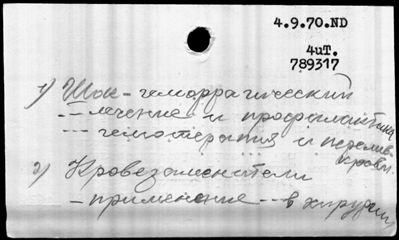 4.9.70.ND
4uT.
789317
1) Шок - геморрагический
-- лечение и профилактика
--- гемотерапия и перелив.
крови.
2) Кровезаменители
- применение -- в хирургии